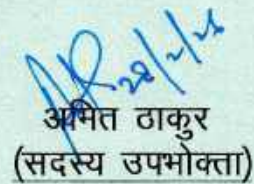 28/2/25
अमित ठाकुर
(सदस्य उपभोक्ता)